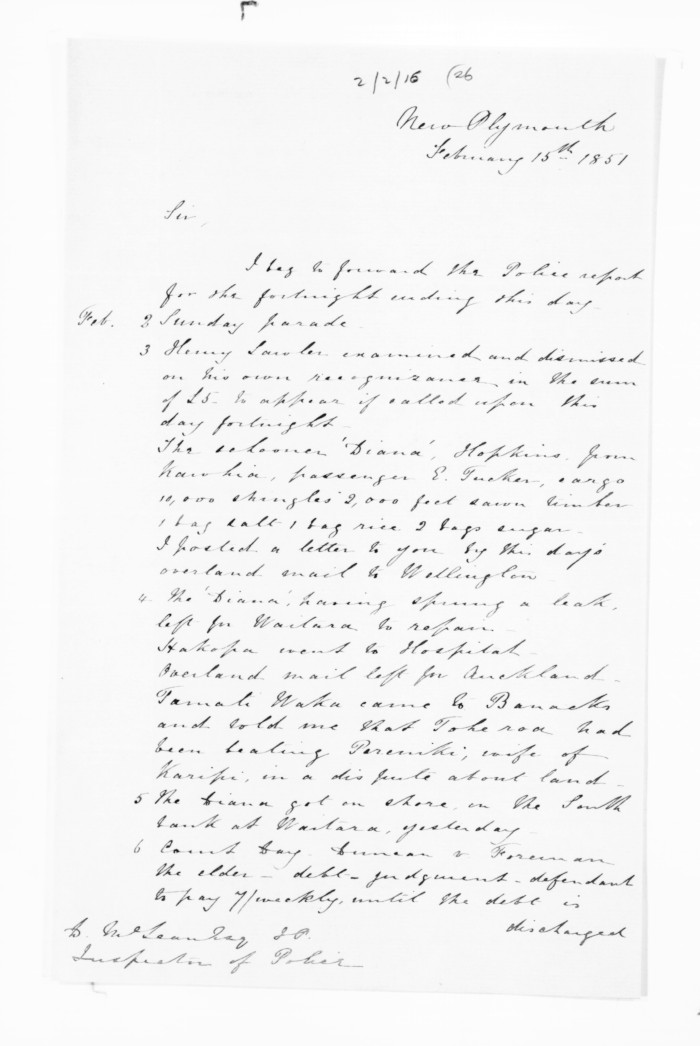 2/2/16 (26
New Plymouth
February 15th 1851
Sir,
I beg to forward the Police report
for the fortnight ending this day.
Feb. 2 Sunday parade.
3 Henry Lawler examined and dismissed
on his own recognizances in the sum
of £5 - to appear if called upon this
day fortnight -
The schooner 'Diana', Hopkins, from
Kawhia, passenger E. Tucker, cargo
10,000 shingles 2,000 feet sawn timber
1 bag salt 1 bag rice 2 bags sugar.
I posted a letter to you by this day's
overland mail to Wellington
4 The 'Diana', having sprung a leak,
left for Waitara to repair -
Hakopa went to Hospital -
Overland mail left for Auckland -
Tamati Waka came to Barracks
and told me that Toheroa had
been beating Pereniki, wife of
Karipi, in a dispute about land -
5 The Diana got on shore on the South
bank at Waitara, yesterday -
6 Court Day. Duncan v Foreman
the elder - debt - judgment - defendant
to pay 7/ weekly, until the debt is
discharged
D. McLean Esq J.P.
Inspector of Police